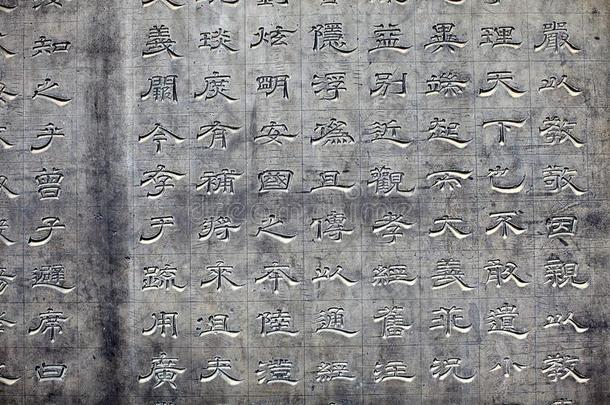 嚴以教敬因親以教
理天下也不敢遺小
異端起而大義乖況
益別近觀孝經舊注
隱浮偽且傳以通經
炫明安國之本陸澄
琰庶有補將來且夫
義闕今存于疏用廣
女知之乎曾子避席曰